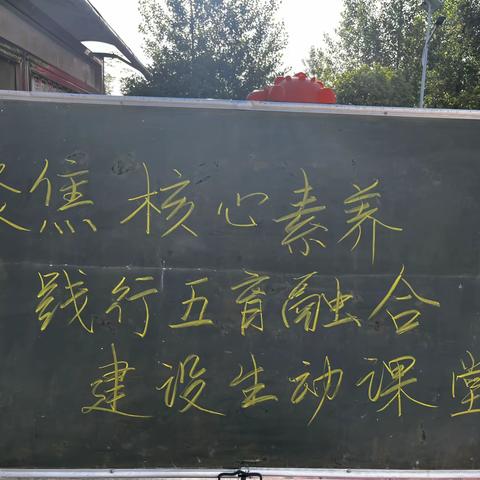 聚焦核心素养
践行五育融合
建设生动课堂